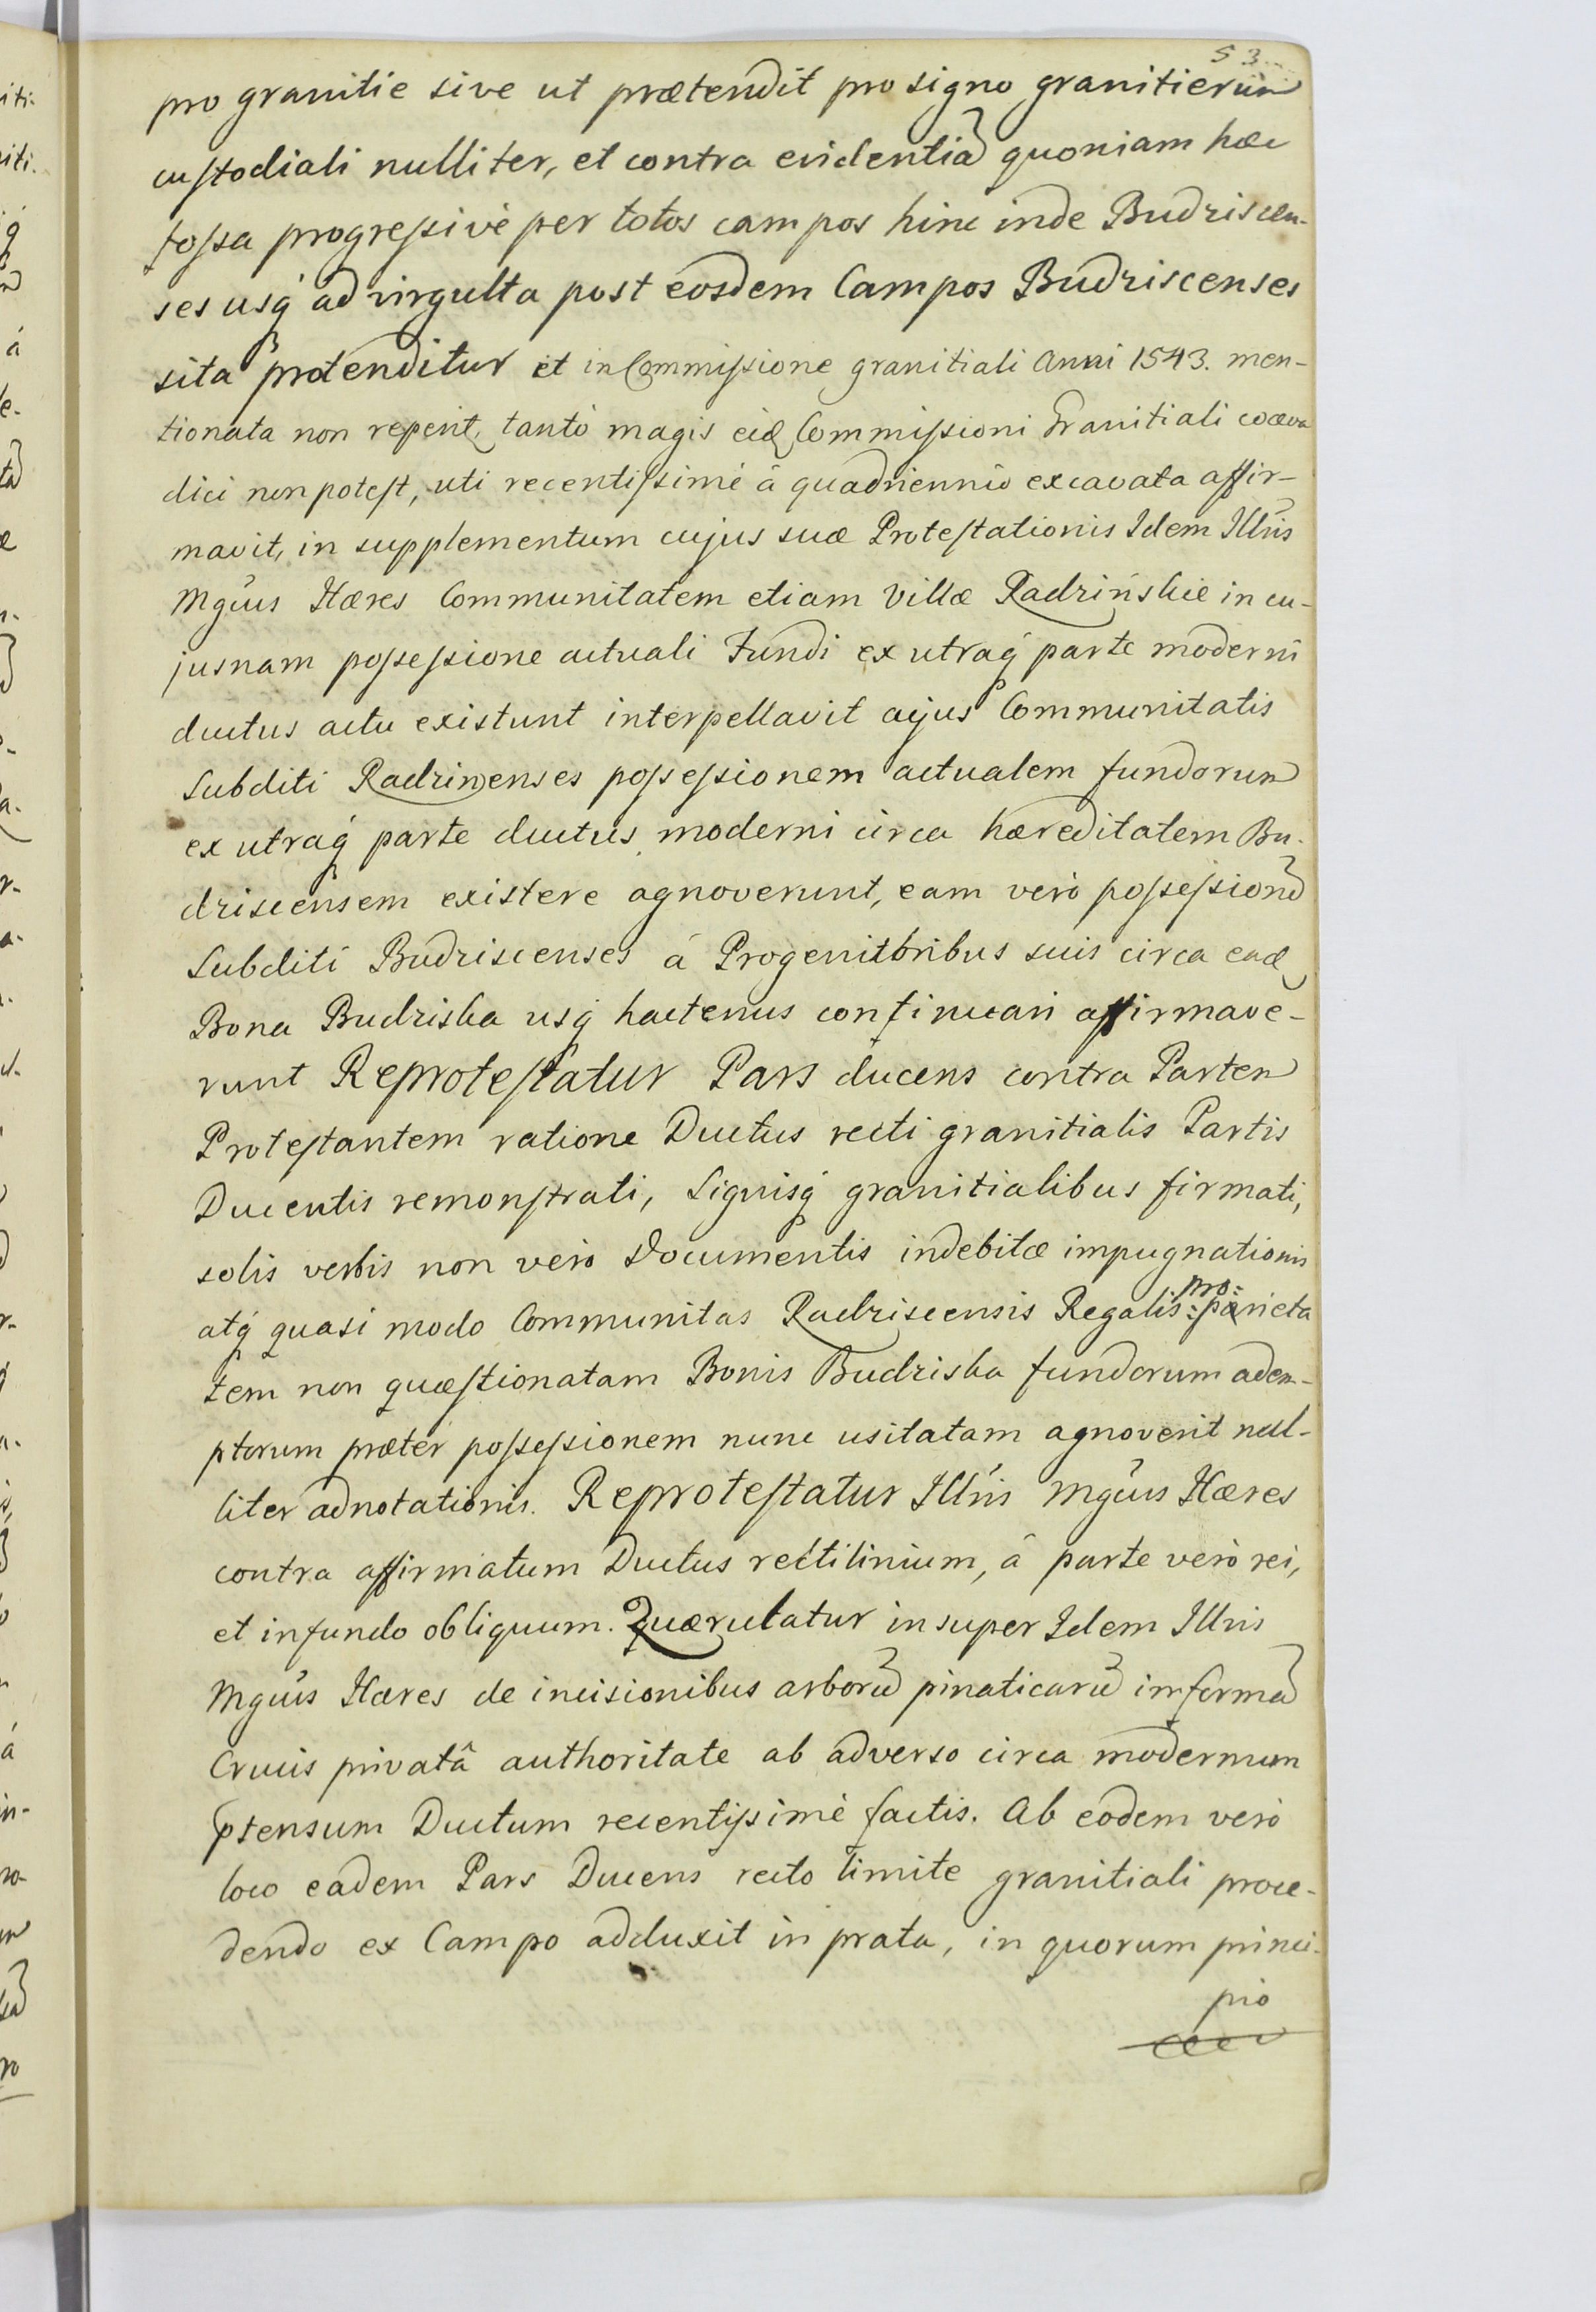 53
pro granitie sive ut prætendit pro signo granitierum
custodiali nulliter, et contra evidentiã quoniam hæc
fossa progressivè per totos campos hinc inde Budriscen-
ses usq́ ad virgulta post eosdem Campos Budriscenses
sita protenditur et in Commissione granitiali Anni 1543. men-
tionata non reperit, tantò magis eid Commissioni Granitiali coæva
dici non potest, uti recentissimè à quadriennio excavata affir-
mavit, in supplementum cujus suæ Protestationis Idem Illris
Mgcus Hæres Communitatem etiam Villæ Radrińskie in cu-
jusnam possessione actuali Fundi ex utraq́ parte moderni
ductus actu existunt interpellavit cujus Communitatis
Subditi Radrinenses possessionem actualem fundorum
ex utraq́ parte ductus moderni circa hæreditatem Bu-
driscensem existere agnoverunt, eam verò possessionẽ
Subditi Budriscenses à Progenitoribus suis circa ead
Bona Budriska usq́ hactenus continuari affirmave-
runt Reprotestatur Pars ducens contra Partem
Protestantem ratione Ductus recti granitialis Partis
Ducentis remonstrati, Signisq́ granitialibus firmati,
solis verbis non verò Documentis indebitæ impugnationis
atq́ quasi modo Communitas Radriscensis Regalis :pro: parieta
tem non quæstionatam Bonis Budriska fundorum adem-
ptorum præter possessionem nunc usitatam agnoverit nul-
liter adnotationis. Reprotestatur Illris Mgcus Hæres
contra affirmatum Ductus rectilinium, à parte verò rei,
et in fundo obliquum. Quærulatur insuper Idem Illris
Mgcus Hæres de incisionibus arborũ pinaticarũ in formã
Crucis privatâ authoritate ab adverso circa modernum
ptensum Ductum recentissimè factis. Ab eodem verò
loco eadem Pars Ducens recto limite granitiali proce-
dendo ex Campo adduxit in prata, in quorum princi-
pio